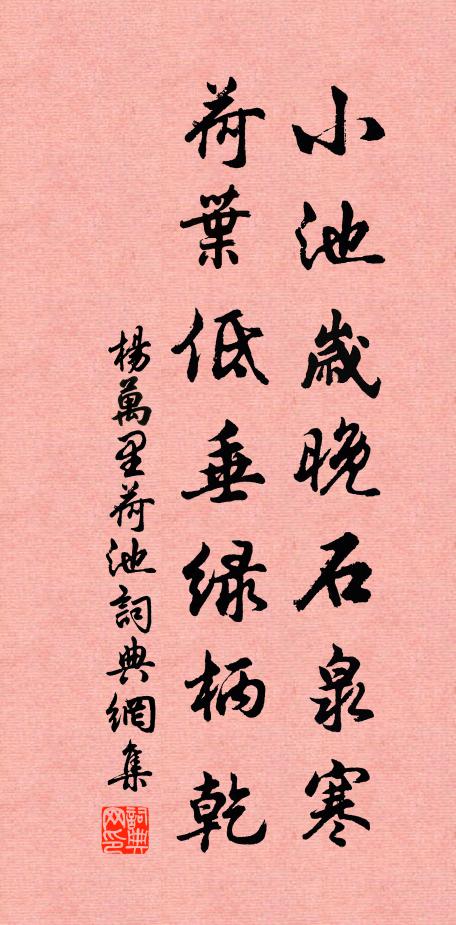 小池歲晚石泉寒
荷葉低垂綠柄乾
楊萬里荷池詞典網集
詞典
网印